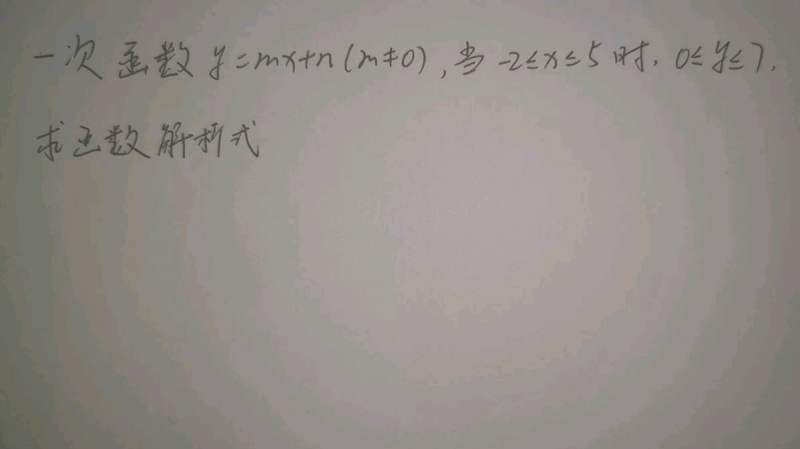 一次函数 y=mx+n(m≠0),当 -2≤x≤5 时, 0≤y≤7.
求函数解析式